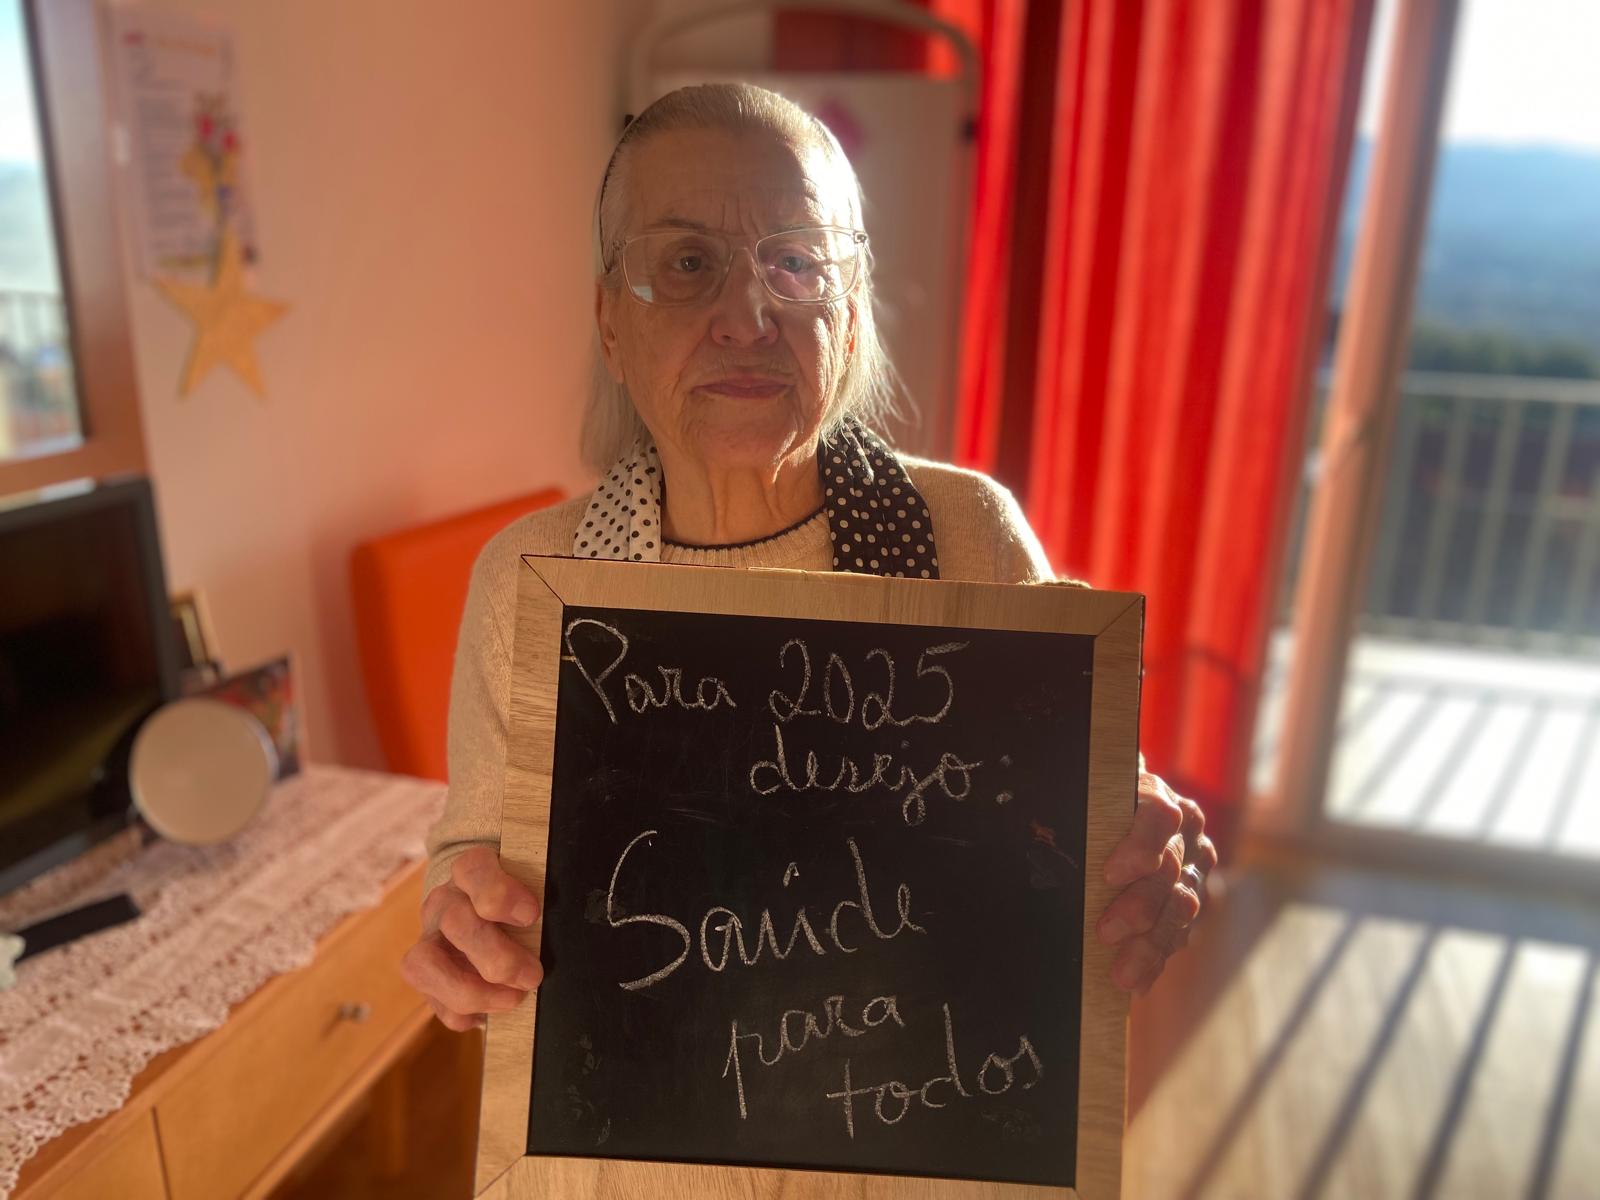 Para 2025
desejo:
Saúde
para
todos